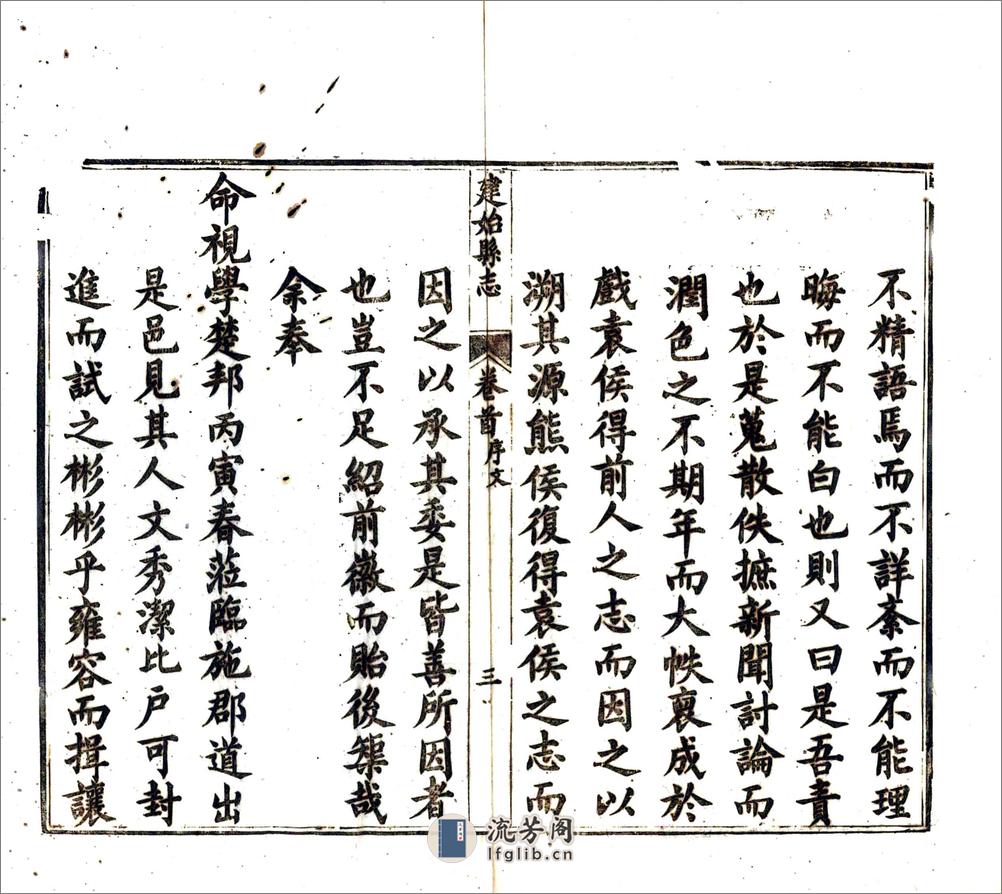 不精語焉而不詳紊而不能理
晦而不能白也則又曰是吾責
也於是蒐散佚摭新聞討論而
潤色之不期年而大帙裒成於
戲袁侯得前人之志而因之以
溯其源熊侯復得袁侯之志而
建始縣志
卷首 序文
三
因之以承其委是皆善所因者
也豈不足紹前徽而貽後榘哉
余奉
命視學楚邦丙寅春蒞臨施郡道出
是邑見其人文秀潔比户可封
進而試之彬彬乎雍容而揖讓
流芳阁
lfglib.cn